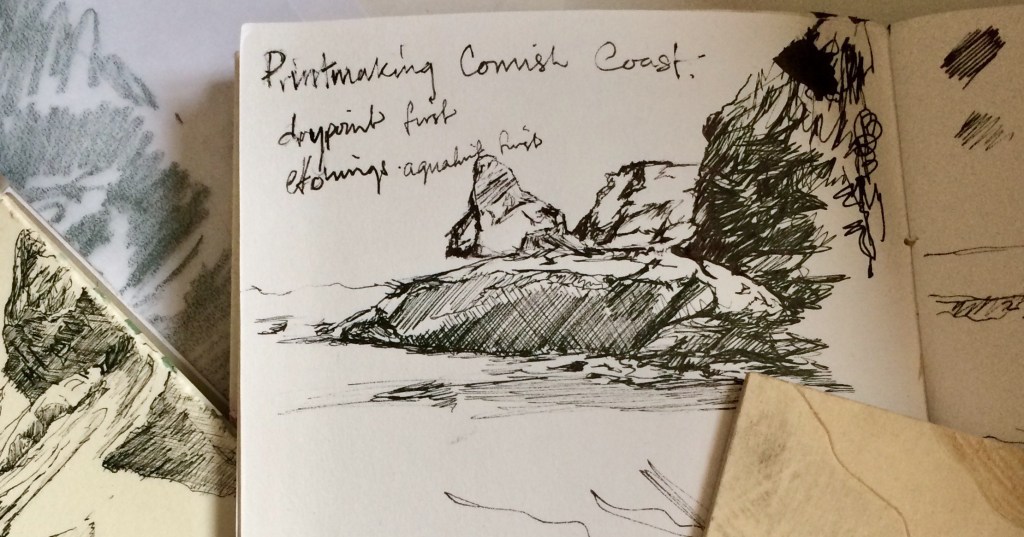 Printmaking Cornish Coast:-
drypoint first
etchings · aquatint first